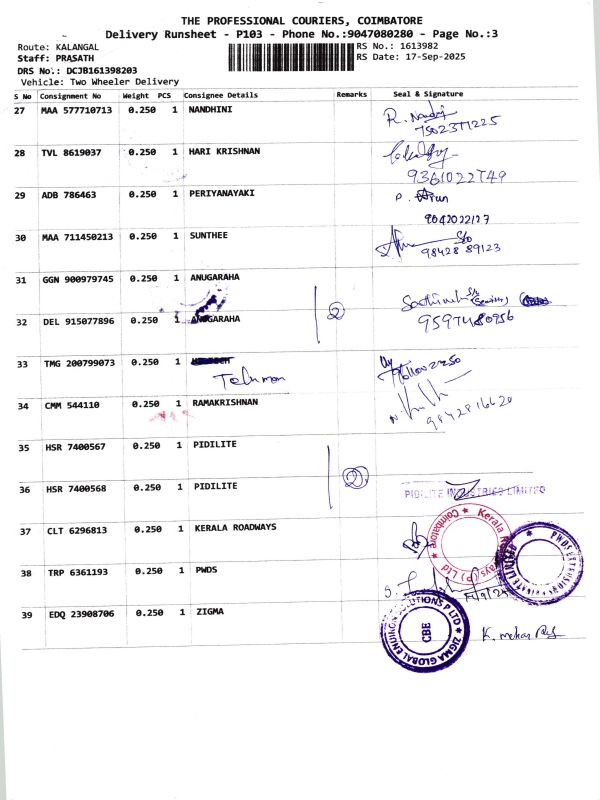 THE PROFESSIONAL COURIERS, COIMBATORE
Delivery Runsheet - P103 - Phone No.:9047080280 - Page No.:3
Route: KALANGAL
RS No.: 1613982
Staff: PRASATH
RS Date: 17-Sep-2025
DRS No.: DCJB161398203
Vehicle: Two Wheeler Delivery
S No Consignment No Weight PCS Consignee Details Remarks Seal & Signature
27 MAA 577710713 0.250 1 NANDHINI
28 TVL 8619037 0.250 1 HARI KRISHNAN
9361022749
29 ADB 786463 0.250 1 PERIYANAYAKI
P. Arun
9042022127
30 MAA 711450213 0.250 1 SUNTHEE
S/o
98428 89123
31 GGN 900979745 0.250 1 ANUGARAHA
2
32 DEL 915077896 0.250 1 ANUGARAHA
9597480956
33 TMG 200799073 0.250 1
34 CMM 544110 0.250 1 RAMAKRISHNAN
9842816620
35 HSR 7400567 0.250 1 PIDILITE
2
36 HSR 7400568 0.250 1 PIDILITE
PIDILITE INDUSTRIES LIMITED
37 CLT 6296813 0.250 1 KERALA ROADWAYS
Kerala Roadways (P) Ltd ★ Coimbatore ★
38 TRP 6361193 0.250 1 PWDS
39 EDQ 23908706 0.250 1 ZIGMA
CBE